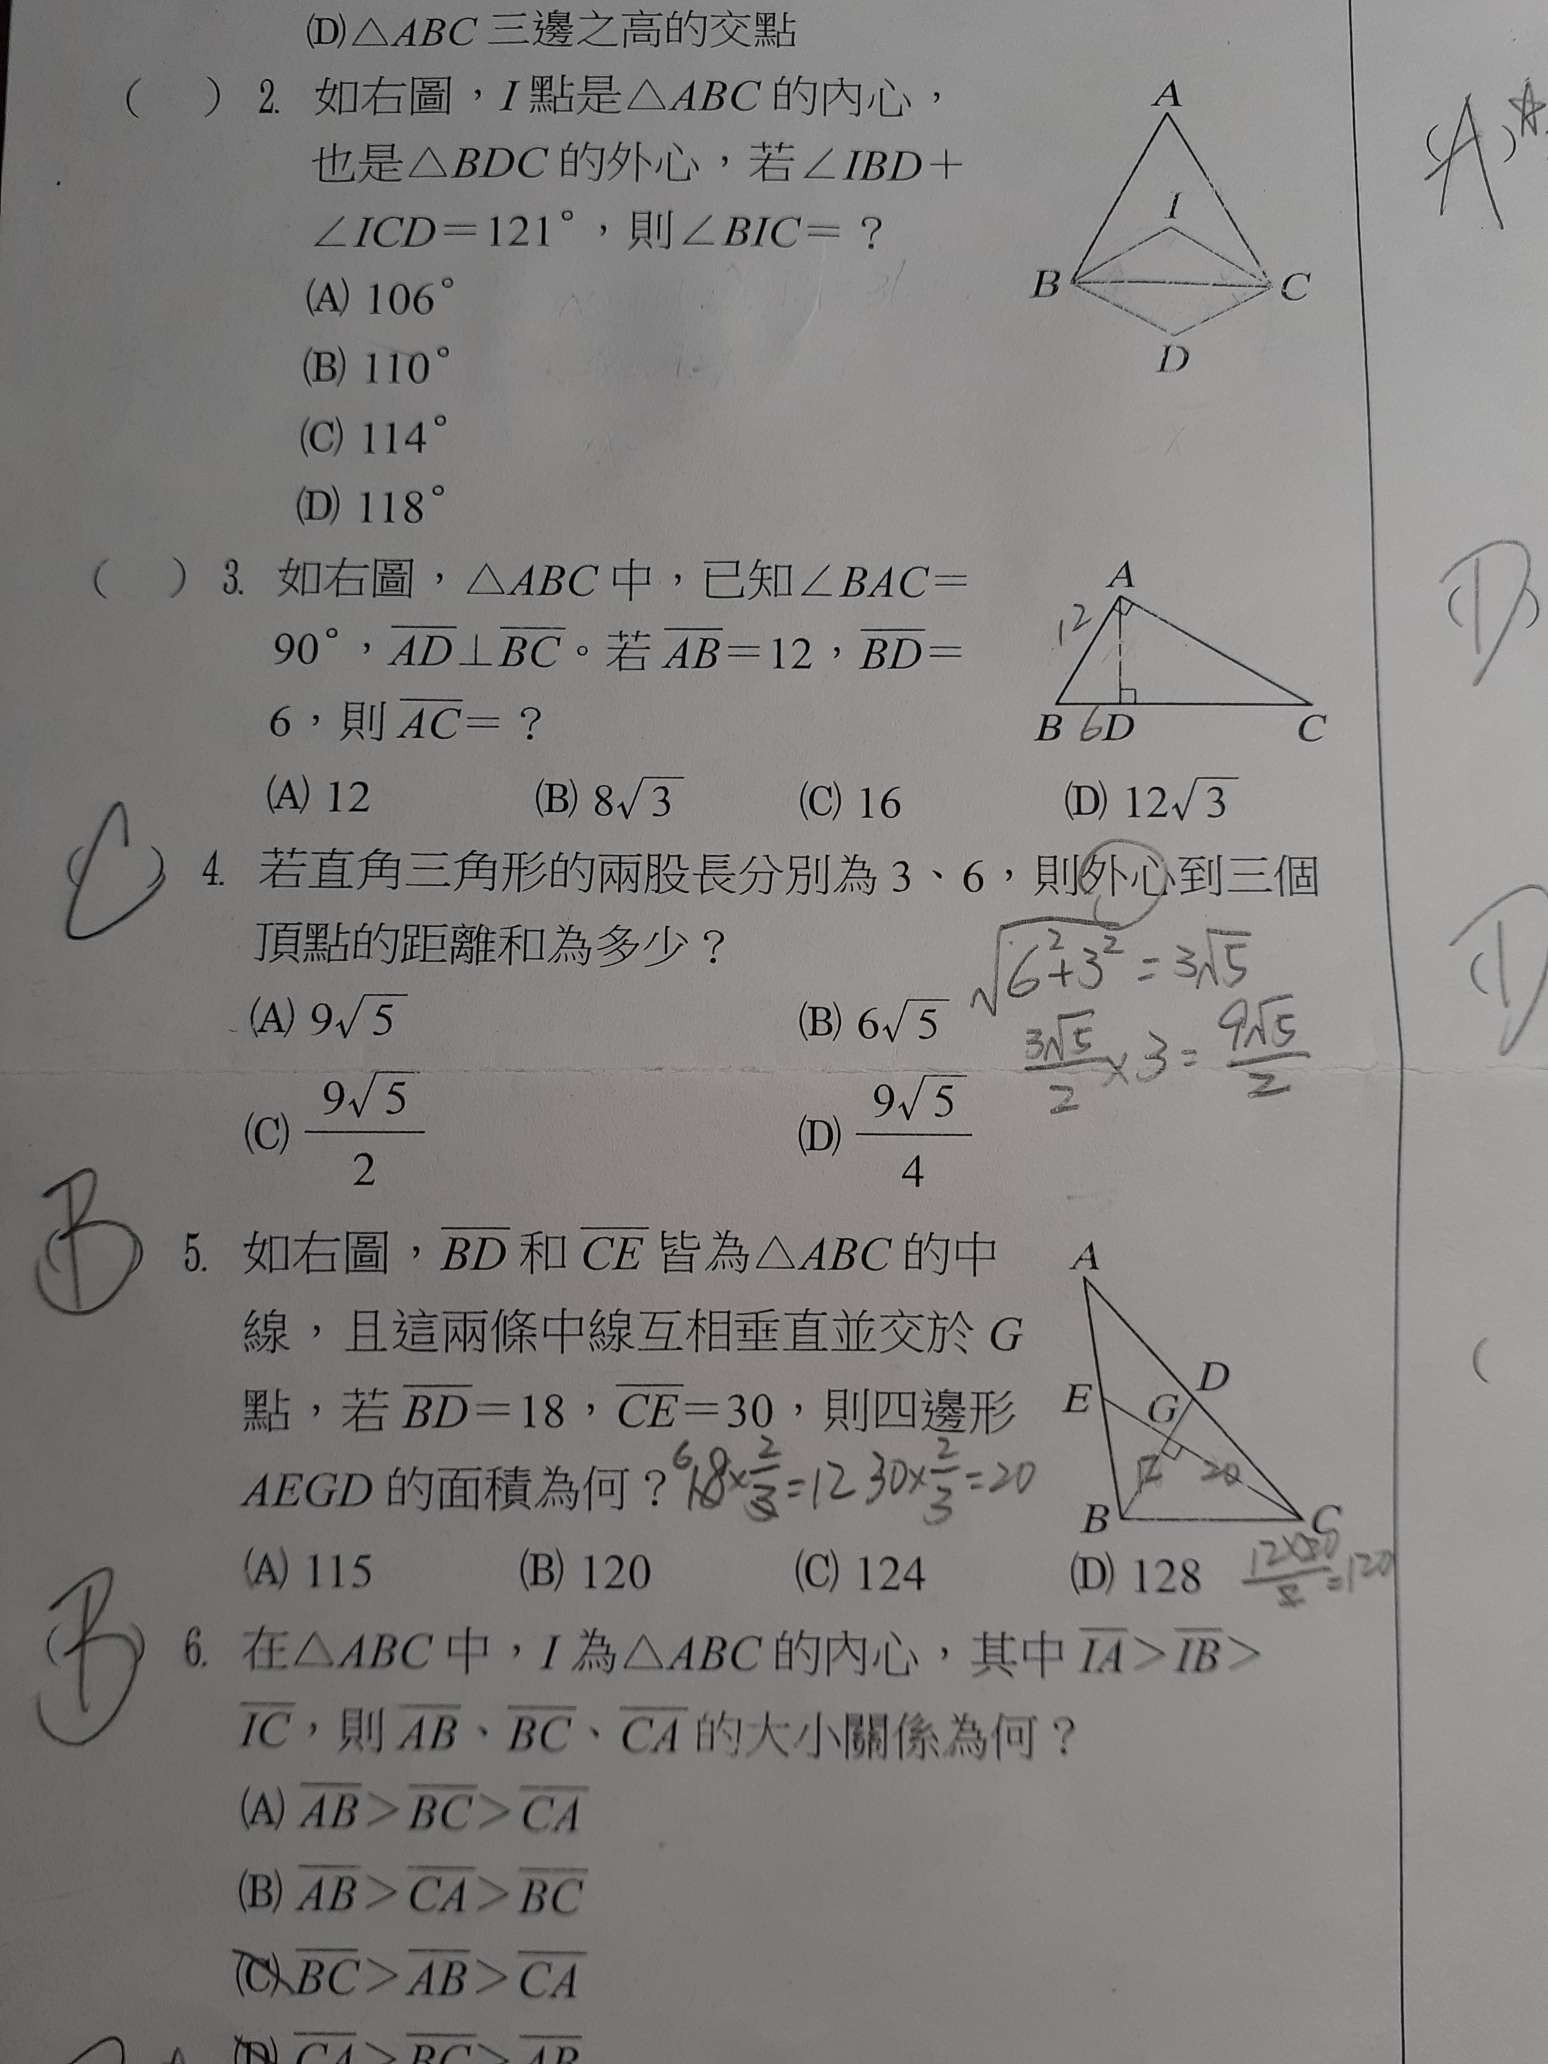 (D)△ABC 三邊之高的交點
(　) 2. 如右圖，I 點是△ABC 的內心，
也是△BDC 的外心，若∠IBD＋
∠ICD＝121°，則∠BIC＝？
(A) 106°
(B) 110°
(C) 114°
(D) 118°
A
I
B
C
D
(A)☆
(　) 3. 如右圖，△ABC 中，已知∠BAC＝
90°，A̅D̅⊥B̅C̅。若 A̅B̅＝12，B̅D̅＝
6，則 A̅C̅＝？
(A) 12 (B) 8√3 (C) 16 (D) 12√3
A
12
B 6 D C
(D)
(C) 4. 若直角三角形的兩股長分別為 3、6，則外心到三個
頂點的距離和為多少？
√6²+3² = 3√5
(A) 9√5 (B) 6√5
3√5/2 × 3 = 9√5/2
(C) 9√5/2 (D) 9√5/4
(D)
(B) 5. 如右圖，B̅D̅ 和 C̅E̅ 皆為△ABC 的中
線，且這兩條中線互相垂直並交於 G
點，若 B̅D̅＝18，C̅E̅＝30，則四邊形
AEGD 的面積為何？ 6 18×2/3=12 30×2/3=20
(A) 115 (B) 120 (C) 124 (D) 128
A
D
E G
12 20
B C
12×20/2=120
(B) 6. 在△ABC 中，I 為△ABC 的內心，其中 I̅A̅＞I̅B̅＞
I̅C̅，則 A̅B̅、B̅C̅、C̅A̅ 的大小關係為何？
(A) A̅B̅＞B̅C̅＞C̅A̅
(B) A̅B̅＞C̅A̅＞B̅C̅
(C) B̅C̅＞A̅B̅＞C̅A̅
(D) C̅A̅＞B̅C̅＞A̅B̅